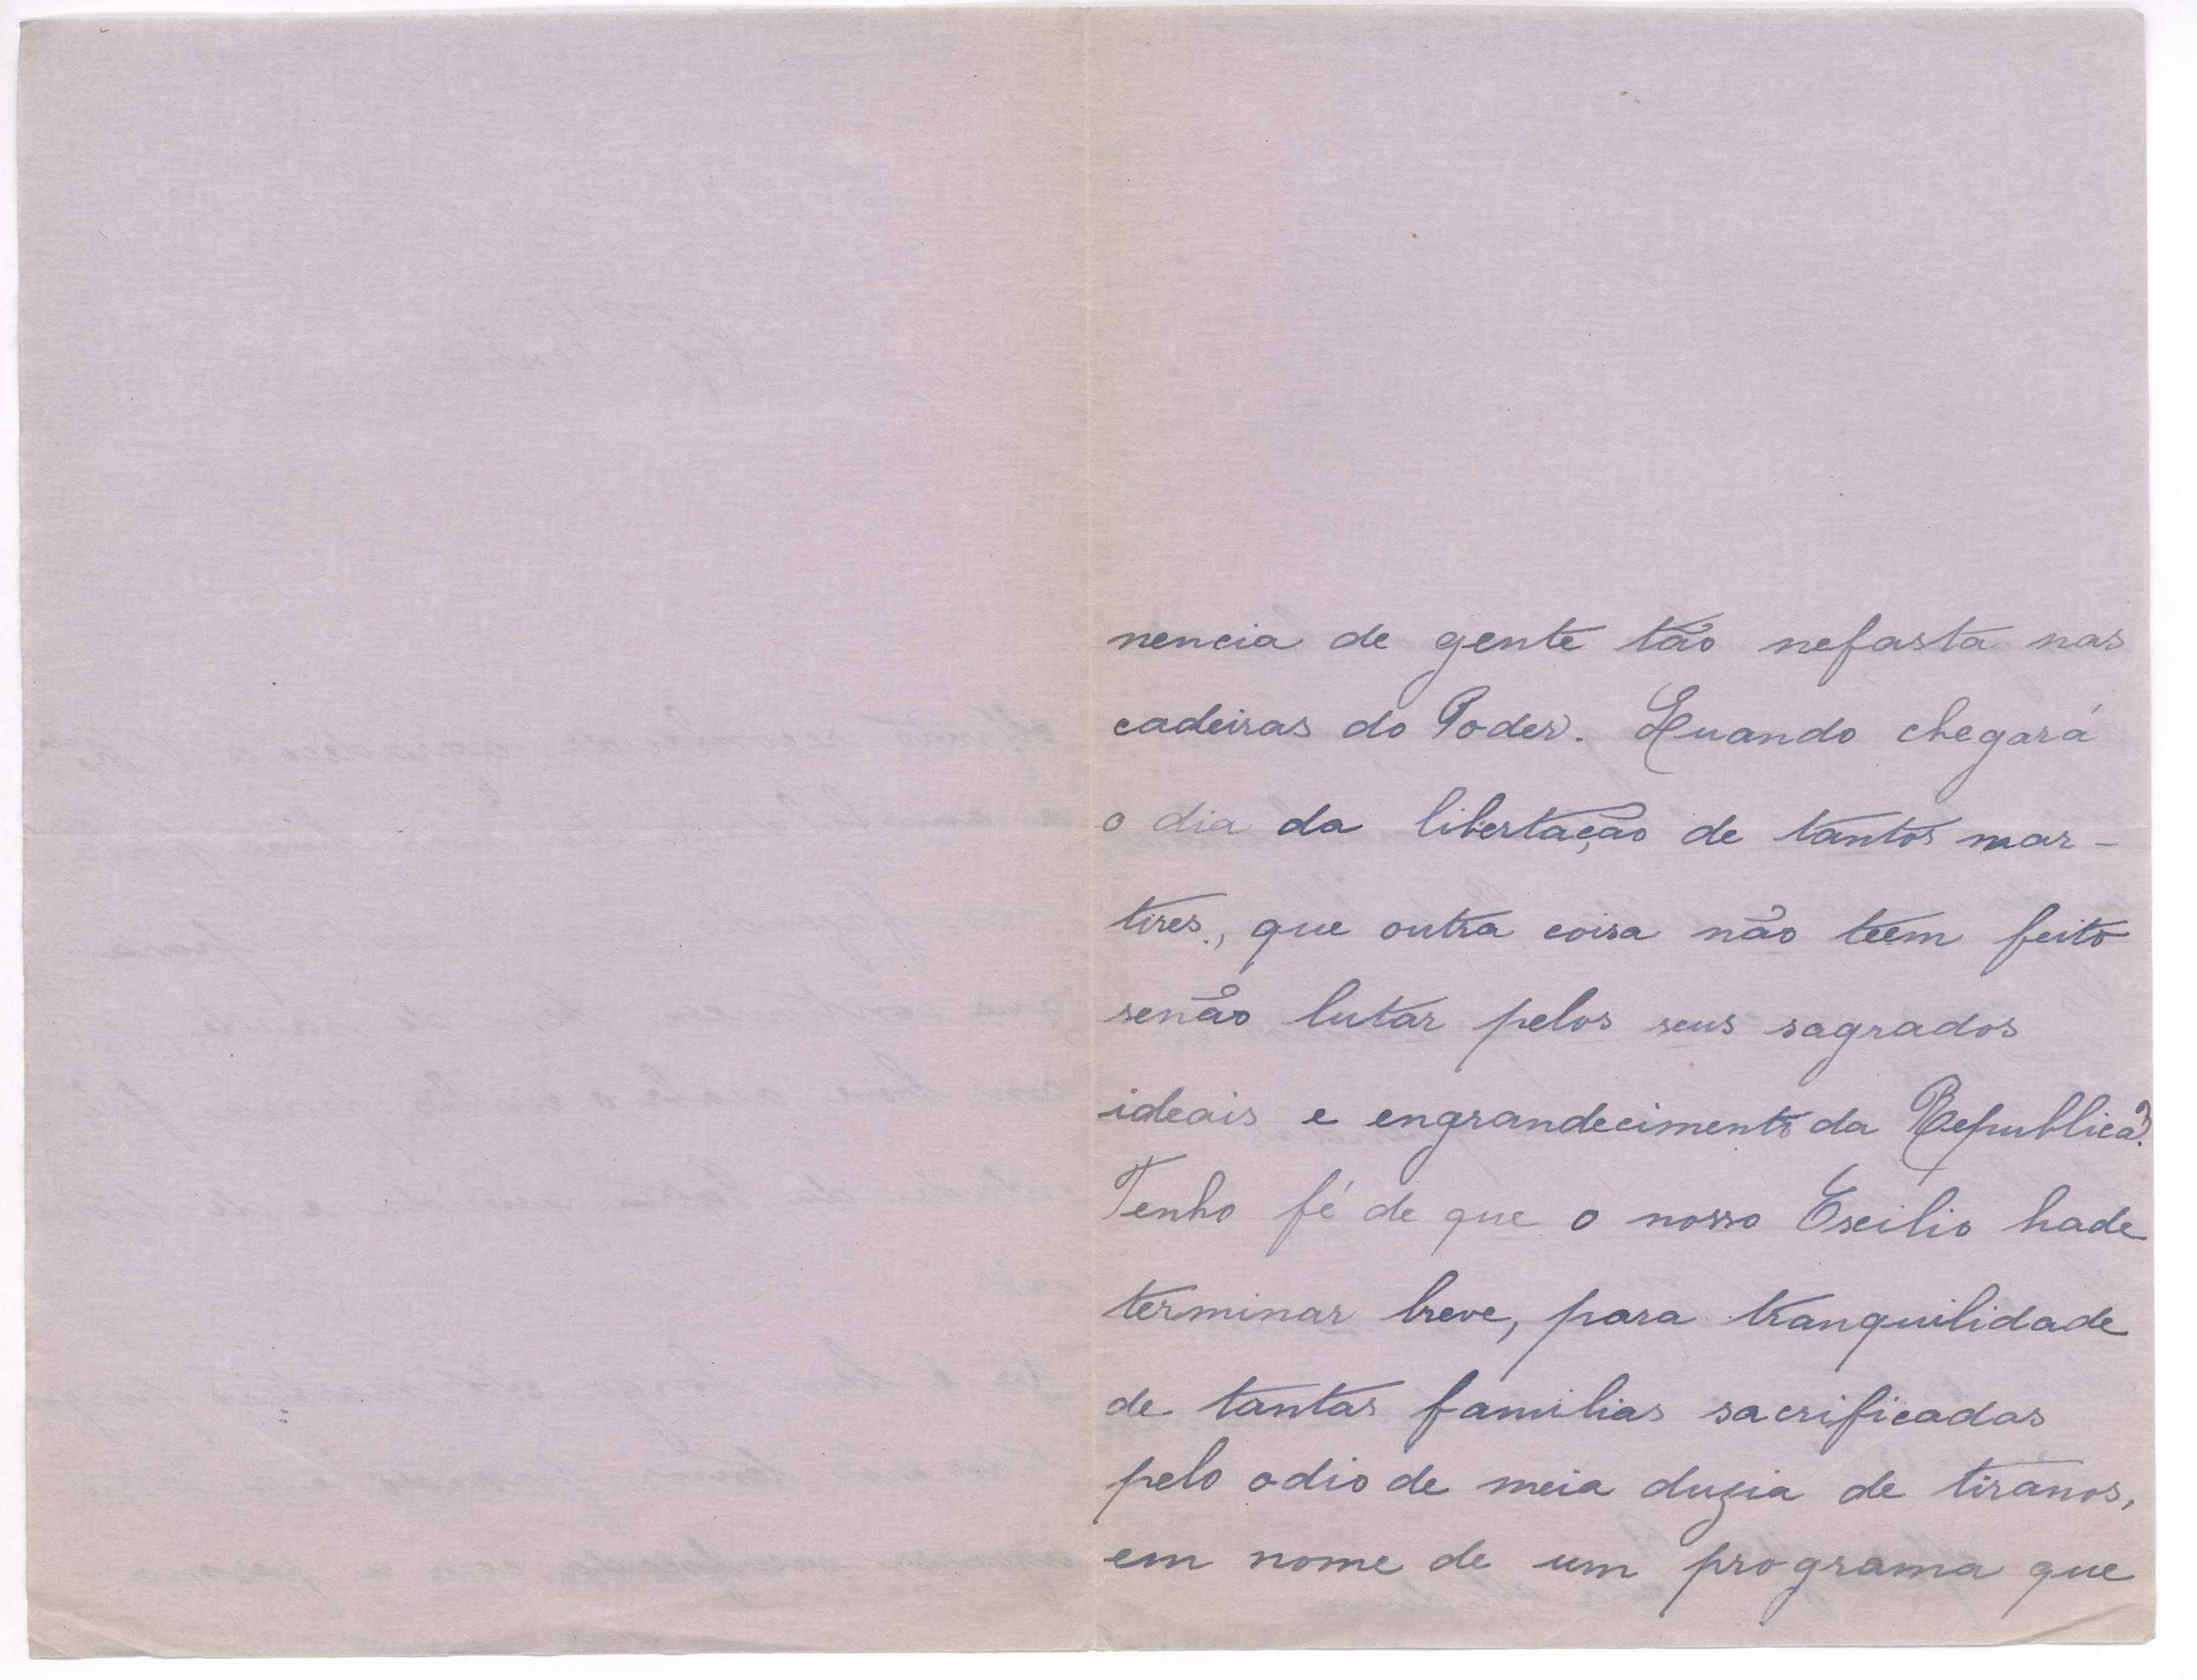 nencia de gente tão nefasta nas
cadeiras do Poder. Quando chegará
o dia da libertação de tantos mar-
tires., que outra coisa não teem feito
senão lutar pelos seus sagrados
ideais e engrandecimento da Republica?
Tenho fé de que o nosso Excilio hade
terminar breve, para tranquilidade
de tantas familias sacrificadas
pelo odio de meia duzia de tiranos,
em nome de um programa que